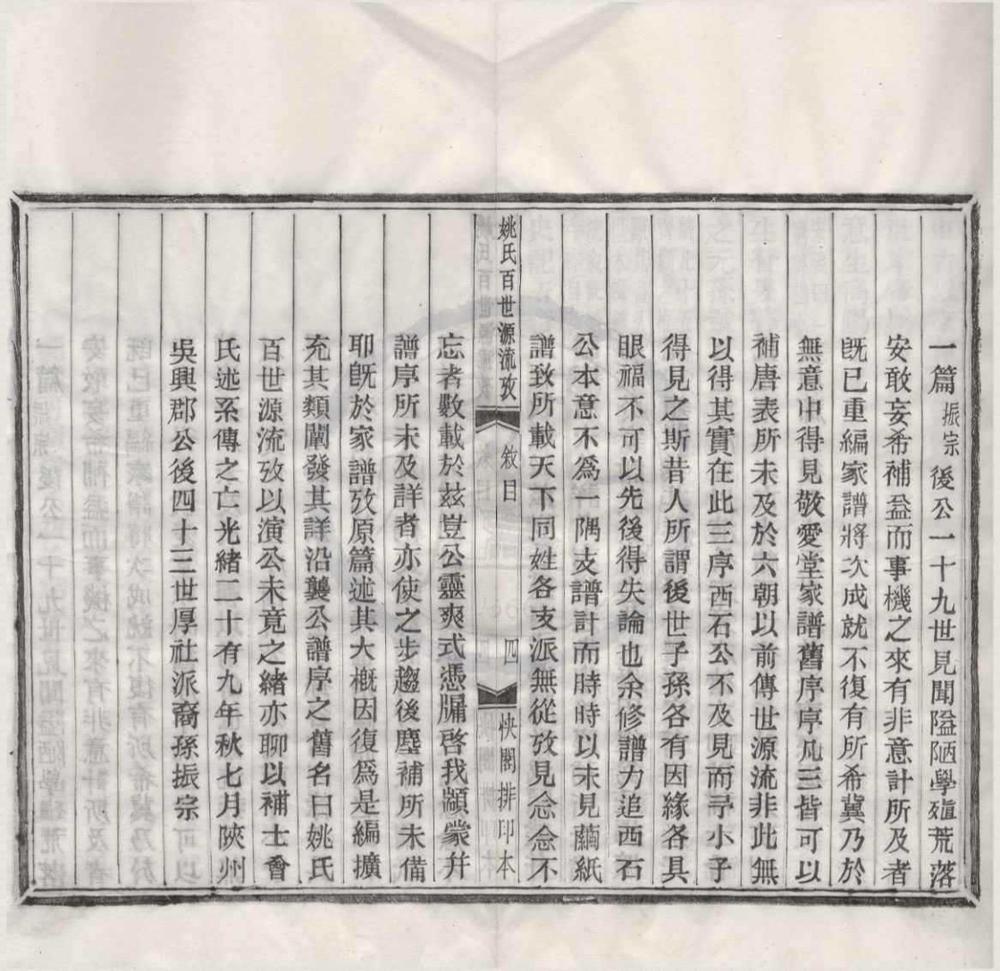 一篇振宗後公一十九世見聞隘陋學殖荒落
安敢妄希補益而事機之來有非意計所及者
旣已重編家譜將次成就不復有所希冀乃於
無意中得見敬愛堂家譜舊序序凡三皆可以
補唐表所未及於六朝以前傳世源流非此無
以得其實在此三序西石公不及見而寻小子
得見之斯昔人所謂後世子孫各有因緣各具
眼福不可以先後得失論也余修譜力追西石
公本意不爲一隅支譜計而時時以未見繭紙
譜致所載天下同姓各支派無從攷見念念不
姚氏百世源流攷
敘目
四
快閣排印本
忘者數載於茲豈公靈爽式憑牖啓我顓蒙幷
譜序所未及詳者亦使之步趨後塵補所未備
耶旣於家譜攷原篇述其大槪因復爲是編擴
充其類闡發其詳沿襲公譜序之舊名曰姚氏
百世源流攷以演公未竟之緒亦聊以補士會
氏述系傳之亡光緒二十有九年秋七月陝州
吳興郡公後四十三世厚社派裔孫振宗